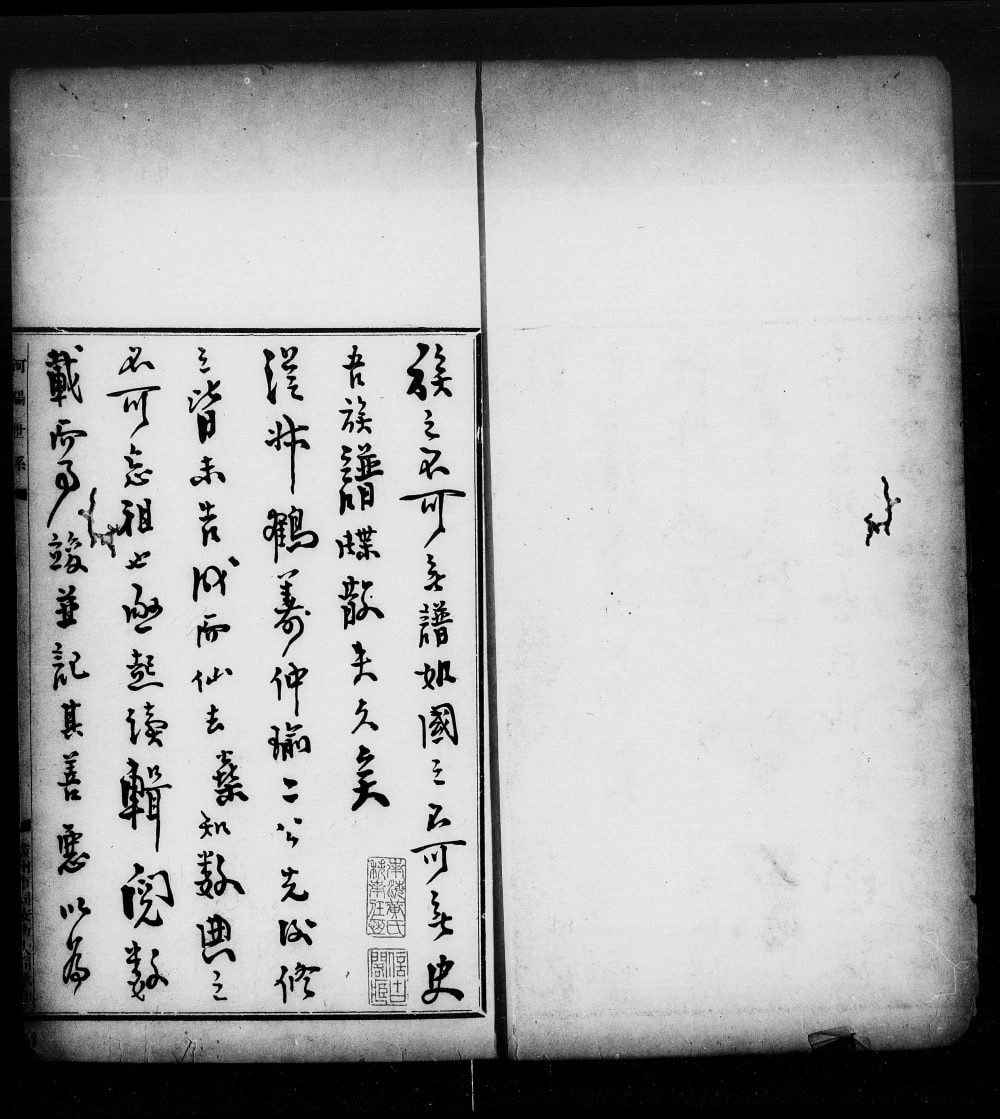 族之不可無譜如國之不可無史
吾族譜牒散失久矣
從叔鶴壽仲瑜二公先後修
之皆未告成而仙去燊知數典之
不可忘祖也亟起續輯閱數
載而事竣並記其善惡以為
河陽世系